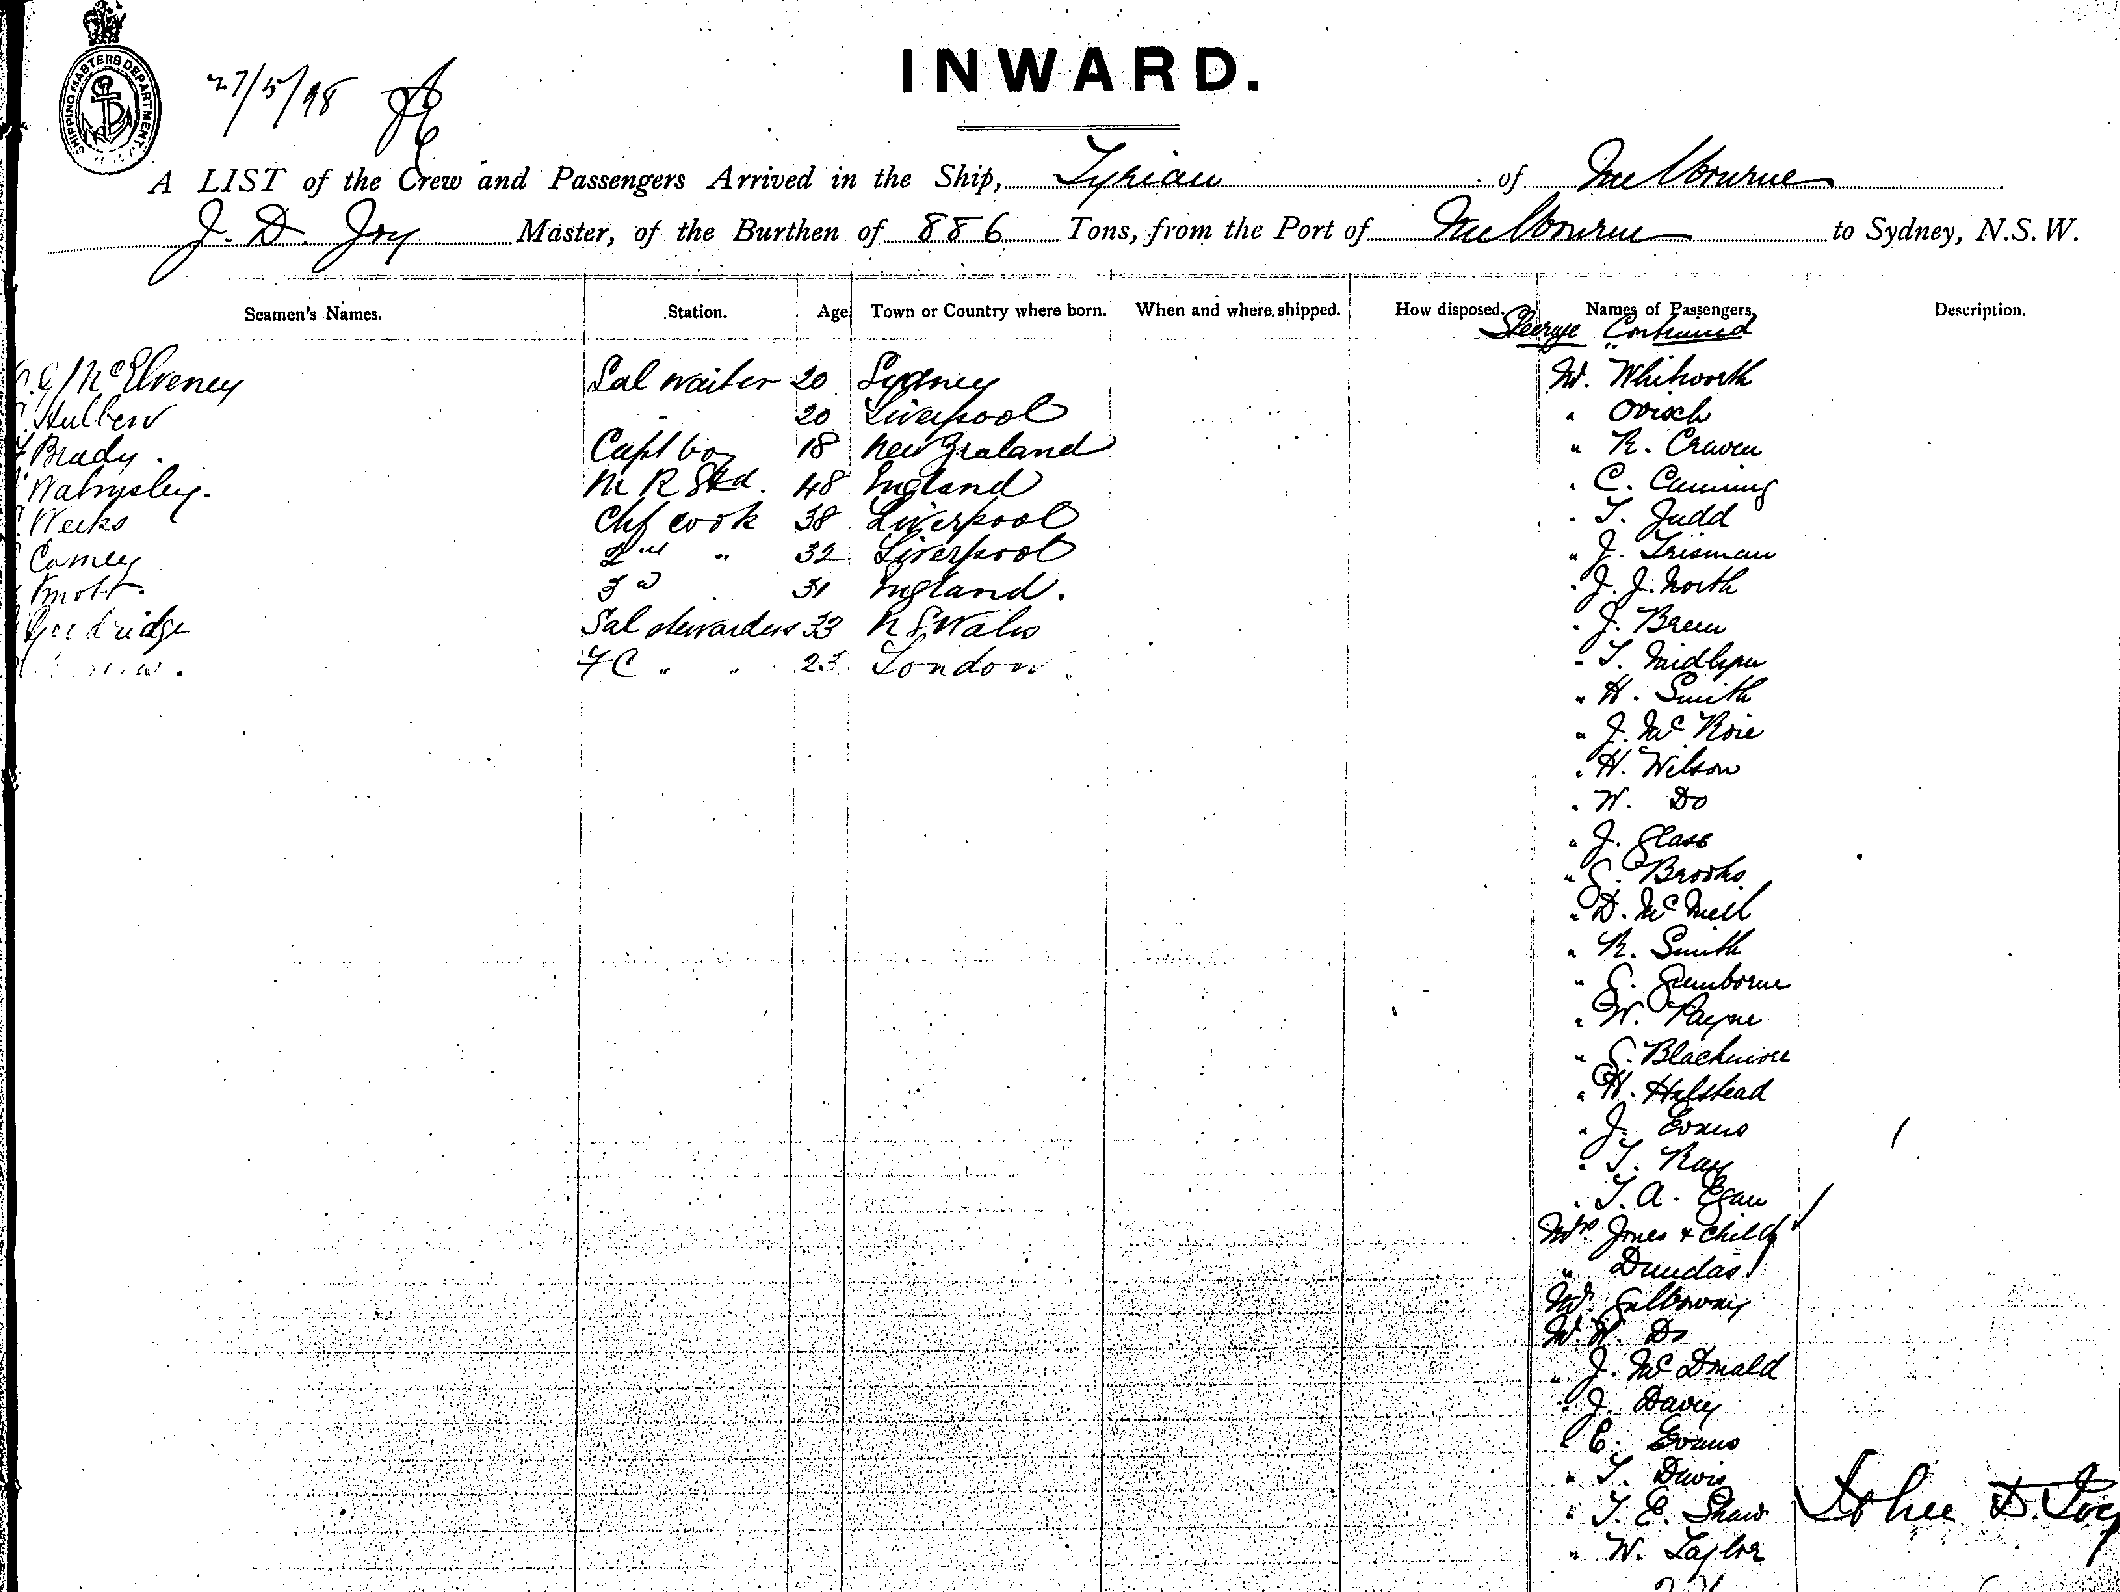 SHIPPING MASTERS DEPARTMENT
27/5/98
INWARD.
A LIST of the Crew and Passengers Arrived in the Ship, Tyrian of Melbourne
J. D. Joy Master, of the Burthen of 886 Tons, from the Port of Melbourne to Sydney, N.S.W.
Seamen's Names. Station. Age Town or Country where born. When and where shipped. How disposed. Names of Passengers, Description.
Steerage Continued
McElveney Sal waiter 20 Sydney W. Whitworth
20 Liverpool " Ovisch
Brady. Capt boy 18 New Zealand " R. Craven
Walmsley. M R Std. 48 England " C. Cumming
Weeks Chf cook 38 Liverpool " T. Judd
Comey 2nd " 32 Liverpool " J. Trisman
Knott. 3d 31 England. " J. J. North
Goodridge Sal stewardess 33 N S Wales " J. Breen
F C " " 23 London " T.
" H. Smith
" J. Mc Roie
" H. Wilson
" W. Do
" J. Glass
" C. Brooks
" D. McNeil
" R. Smith
" C.
" W. Payne
" C. Blackmore
" H. Halstead
" J. Evans
" T. Ray
" T. A. Egan
Mrs Jones & child
" Dundas
Mr. Galloway
W. Do
" J. McDonald
" J. Davey
" E. Evans
" T. Davis
" T. E. Shaw John D. Joy
" W. Taylor